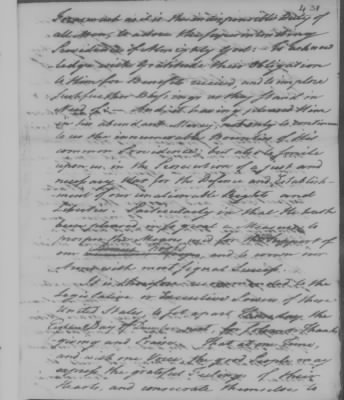 431
Forasmuch as it is the indispensible Duty of
all Men, to adore the superintending
Providence of Almighty God; to acknow
ledge with Gratitude their Obligation
to Him for Benefits received, and to implore
such further Blessings as they stand in
Need of: And it having pleased Him
in his abundant Mercy, not only to continue
to us the innumerable Bounties of his
common Providence; but also to smile
upon us in the Prosecution of a just and
necessary War for the Defence and Establish-
ment of our unalienable Rights and
Liberties. Particularly in that he hath
been pleased, in so great a Measure, to
prosper the Means used for the Support of
our Troops, and to crown our
Arms with most signal Success.
It is therefore recommended to the
legislative or executive Powers of these
United States, to set apart Thursday, the
eighteenth Day of December next, for solemn Thanks
giving and Praise. That at one Time,
and with one Voice, the good People may
express the grateful Feelings of their
Hearts, and consecrate themselves to